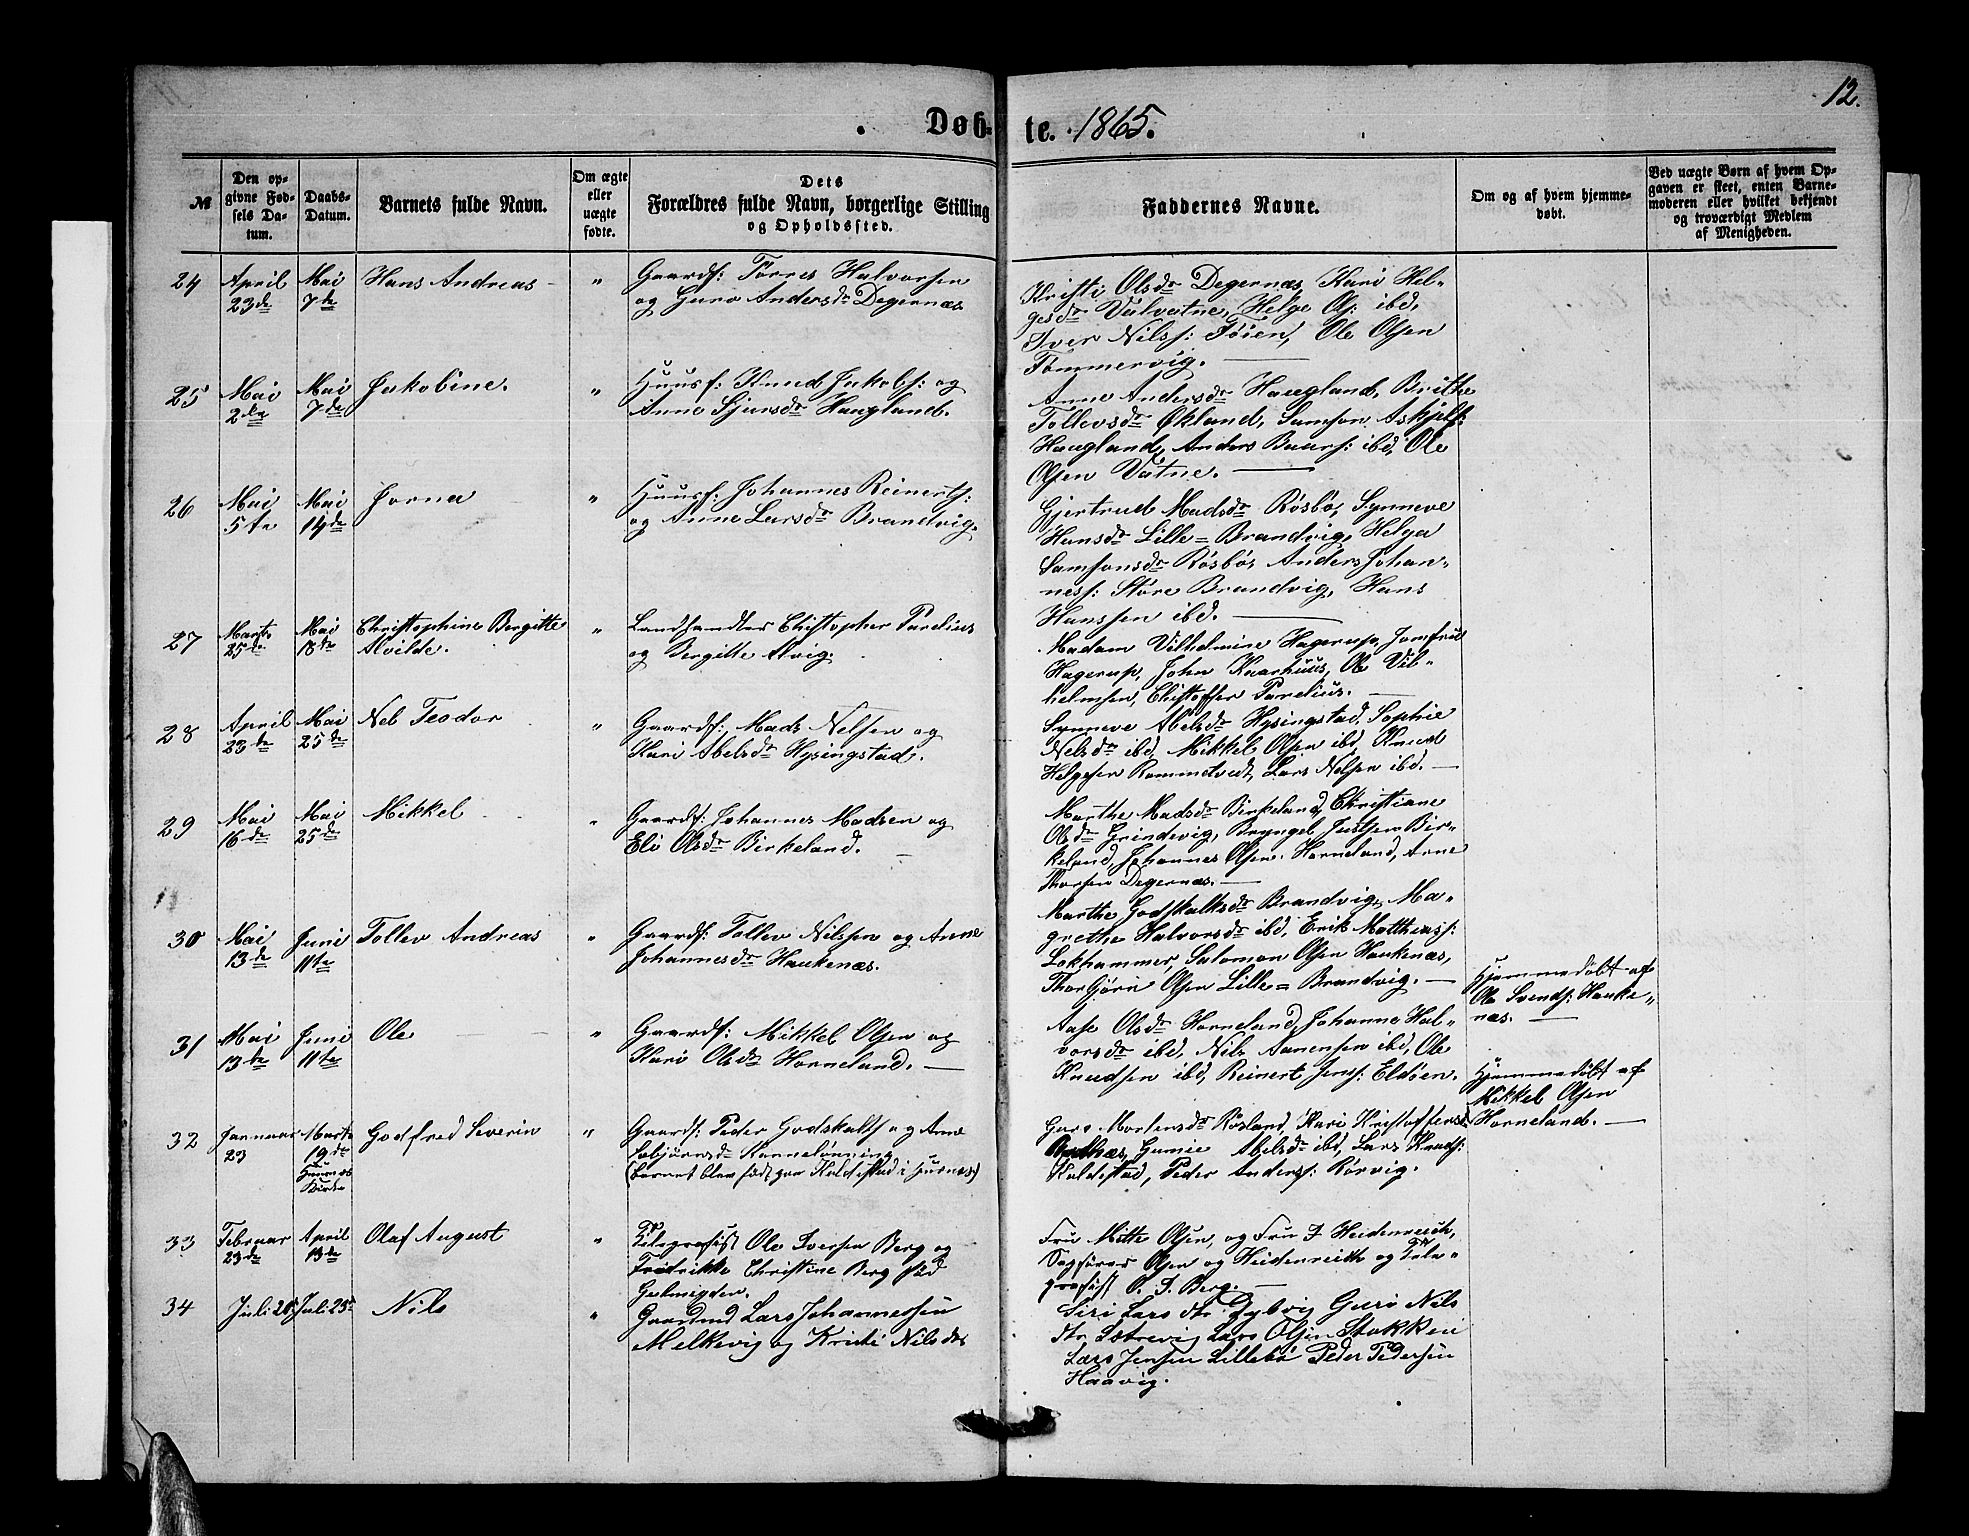 12.
Døb-te. 1865.
№
Den opgivne Fødsels Datum.
Daabs-Datum.
Barnets fulde Navn.
Om ægte eller uægte fødte.
Dets Forældres fulde Navn, borgerlige Stilling og Opholdssted.
Faddernes Navne.
Om og af hvem hjemmedøbt.
Ved uægte Børn af hvem Opgaven er skeet, enten Barnemoderen eller hvilket bekjendt og troværdigt Medlem af Menigheden.
24 April 23de Mai 7de Hans Andreas "
Gaardf: Tørres Halvorsen
og Guro Andersdr Degernæs
Kristi Olsdr Degernæs, Kari Hel-
gesdr Valvatne, Helge Ols: ibd,
Iver Nilss: Tøien, Ole Olsen
Tømmervig.
25 Mai 2den Mai 7de Jakobine. "
Huusf: Knud Jakobs: og
Anne Sjursdr Haugland.
Anne Andersdr Haugland, Brithe
Tollevsdr Økland, Samson Askjels:
Haugland, Anders Baars: ibd, Ole
Olsen Vatne.
26 Mai 5te Mai 14de Jorna "
Huusf: Johannes Reinerts:
og Anne Larsdr Brandvig.
Gjertrud Madsdr Røsbø, Synneve
Hansdr Lille=Brandvig, Helga
Samsonsdr Røsbø, Anders Johan-
ness: Store Brandvig, Hans
Hanssen ibd.
27 Marts 25de Mai 18de Christophine Bergitte
Alvilde. "
Landhandler Christopher Parelius
og Bergitte Alvig.
Madam Vilhelmine Hagerup, Jomfru
Hagerup, John Knarhuus, Ole Vil-
helmsen, Christoffer Parelius.
28 April 23de Mai 25de Nels Teodor "
Gaardf: Mads Nelsen og
Kari Abelsdr Hysingstad.
Synneve Abelsdr Hysingstad, Sophie
Nelsdr ibd, Mikkel Olsen ibd, Knud
Helgesen Rommetvedt, Lars Nelsen ibd.
29 Mai 16de Mai 25de Mikkel "
Gaardf: Johannes Madsen og
Eli Olsdr Birkeland.
Marthe Madsdr Birkeland, Christiane
Olsdr Grindevig, Bryngel Justsen Bir-
keland, Johannes Olsen Horneland, Arne
Thorsen Degernæs.
30 Mai 13de Juni 11te Tollev Andreas "
Gaardf: Tollev Nilssen og Anne
Johannesdr Haukenæs.
Marthe Godskalksdr Brandvig, Ma-
grethe Halvorsdr ibd, Erik Matthiass:
Lokhammer, Salomon Olsen Haukenæs,
Thorbjørn Olsen Lille=Brandvig.
Hjemmedøbt af
Ole Svends: Hauke-
næs.
31 Mai 13de Juni 11te Ole "
Gaardf: Mikkel Olsen og
Kari Olsdr Horneland.
Aase Olsdr Horneland, Johanne Hal-
vorsdr ibd, Nils Aanensen ibd, Ole
Knudsen ibd, Reinert Jens: Eldøen.
Hjemmedøbt af
Mikkel Olsen
Horneland.
32 Januar 23 Marts 19de Huusnæs Kirke Godfred Severin "
Gaardf: Peder Godskalks og Anne
Sebjørnsdr Kannelønning
(barnet blev født paa Kaldestad i Husnæs)
Guro Mortensdr Røsland, Kari Kristoffersdr
Gunnie Abelsdr ibd, Lars Knuds:
Kaldestad, Peder Anderss: Rørvig.
33 Februar 23de April 13de Olaf August "
Telegrafist Ole Iversen Berg og
Fredrikke Christine Berg fød
Gulmigden.
Fru Mitte Olsen, og Fru J Heidenreich,
Sagfører Olsen og Heidenreich og Tele-
grafist O. I. Berg.
34 Juli 20 Juli 25 Nils "
Gaardmd Lars Johannessen
Melkevig og Kristi Nilsdtr
Siri Lars dtr Dybvig Guro Nils
dtr Sætrevig Lars Olsen Stokken
Lars Jensen Lillebø Peder Pedersen
Haavig.